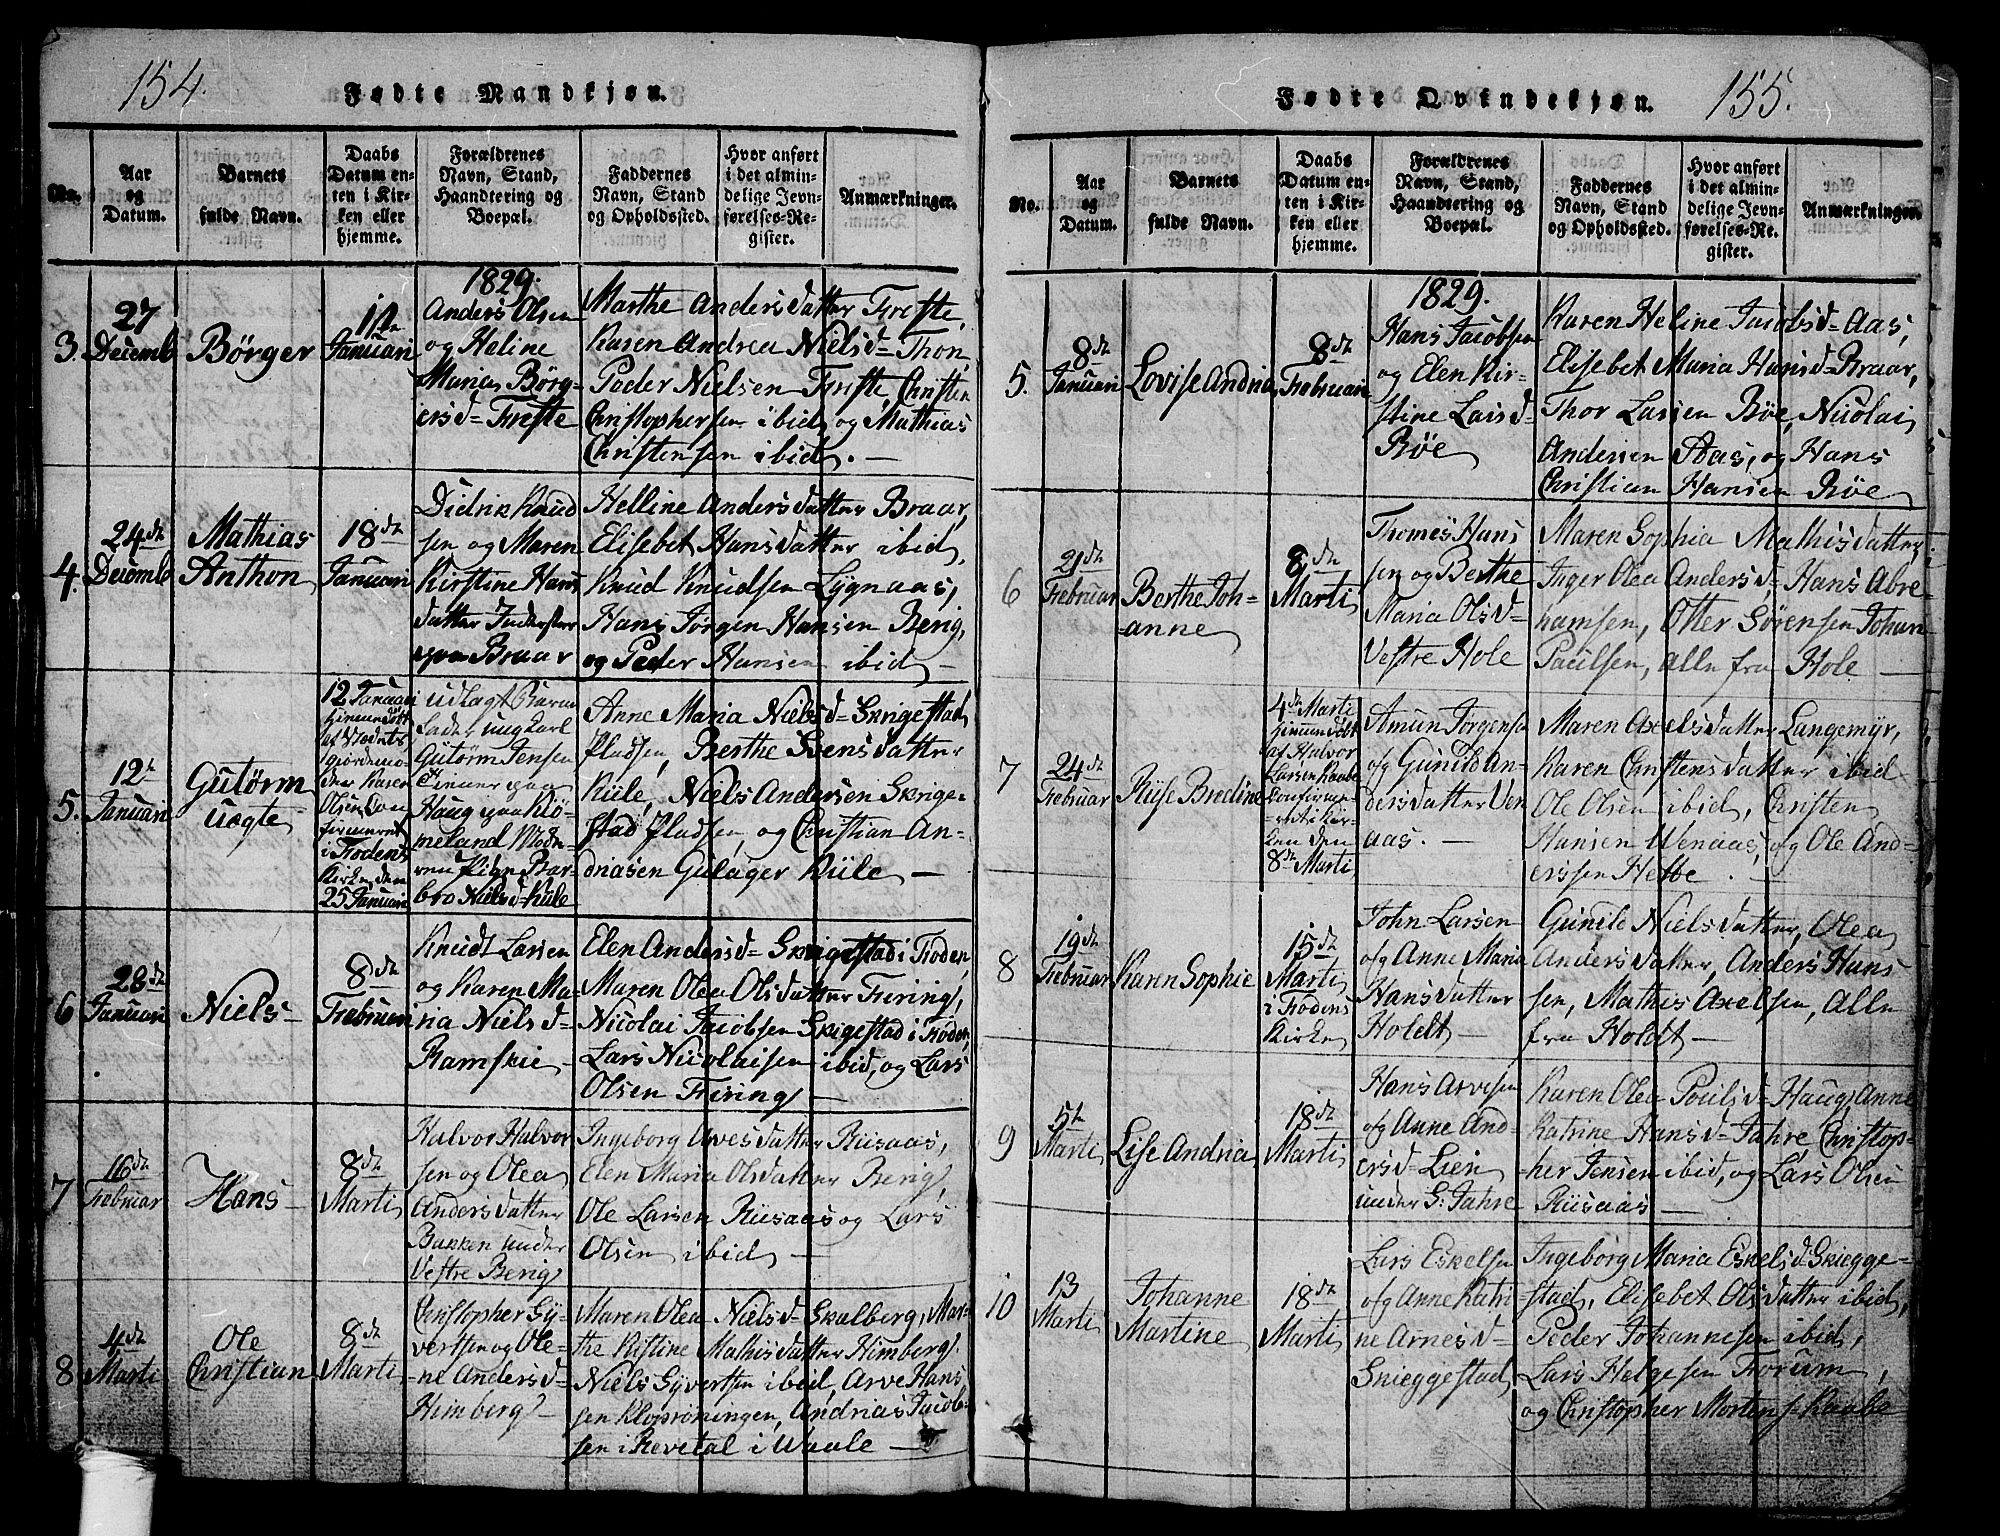 154.
Fødte Mandkjøn.
No.
Aar
og
Datum.
Barnets
fulde Navn.
Daabs
Datum en-
ten i Kir-
ken eller
hjemme.
Forældrenes
Navn, Stand,
Haandtering og
Boepæl.
Faddernes
Navn, Stand
og Opholdssted.
Hvor anført
i det almin-
delige Jevn-
førelses-Re-
gister.
Anmærkninger.
3.
27
Decemb
Børger
11te
Januari
1829.
Anders Olsen
og Heline
Maria Børg-
ersd=
Marthe Andersdatter
Karen Andrea Nielsd=
Peder Nielsen Christen
Christophersen ibid, og Mathias
Christensen ibid. —
4.
24de
Decemb
Mathias
Anthon
18de
Januari
Didrik Knud
sen og Maren
Kirstine Hans
datter
Braar
Helline Andersdatter Braar,
Elisebet Hansdatter ibid,
Knud Knudsen Lygnaas,
Hans Jørgen Hansen Berig,
og Peder Hansen ibid —
5.
12te
Januari
Gutørm
uegte
12 Januari
af
Karen
Olsen
i Frodens
Kirke, den
25 Januari
udlagt Barne
fader ungkarl
Gutørm Jensen
Haug paa
Mode-
ren Pigen Bar-
bro Nielsd= Kule
Anne Maria Nielsd= Skrigestad
Pladsen, Berthe Svensdatter
Kule, Niels Andersen Skrige-
stad Pladsen, og Christian An-
driasen Gulager Kule —
6
28de
Januari
Niels —
8de
Februari
Knudt Larsen
og Karen Ma-
ria Nielsd=
Ramskie —
Elen Andersd= Skrigestad i Froden,
Maren Olea Olsdatter Friring,
Nicolai Jacobsen Skigestad i Froden,
Lars Nicolaisen ibid, og Lars
Olsen Friring —
7
16de
Februar
Hans —
8de
Marti
Halvor Halvor
sen og Olea
Andersdatter
Bakken under
Vestre Berig
Ingeborg Arvesdatter Rusaas,
Elen Maria Olsdatter Berig,
Ole Larsen Rusaas og Lars
Olsen ibid —
8
4de
Marti
Ole
Christian
8de
Marti
Christopher Gy-
vertsen og Ole-
ne Andersd=
Himberg —
Maren Olea Nielsd= Skalberg, Mar-
the Kistine Mathisdatter Himberg.
Niels Gyvertsen ibid, Arve Hans
sen Andrias Jacob-
sen i Revetal i Waale —
155.
Fødte Qvindekjøn.
No.
Aar
og
Datum.
Barnets
fulde Navn.
Daabs
Datum en-
ten i Kir-
ken eller
hjemme.
Forældrenes
Navn, Stand,
Haandtering og
Boepæl.
Faddernes
Navn, Stand
og Opholdssted.
Hvor anført
i det almin-
delige Jevn-
førelses-Re-
gister.
Anmærkninger.
5.
8de
Januari
Lovise Andria
8de
Februari
1829.
Hans Jacobsen
og Elen Kir-
stine Larsd=
Bøe
Karen Heline Jacobsd= Aas,
Elisebet Maria Hansd= Braar,
Thor Larsen Bøe, Nicolai
Andersen Aas, og Hans
Christian Hansen Bøe
6
21de
Februar
Berthe Joh-
=anne
8de
Marti
Thomes Hans
sen og Berthe
Maria Olsd=
Vestre Hole
Maren Sophia Mathisdatter
Inger Olea Andersd=, Hans Abre-
hamsen, Otter Sørensen, Johan
Paulsen, alle fra Hole —
7
24de
Februar
Ruse Bredine
4de Marti
af Halvor
Larsen Raabe
den
8de Marti
Amun Jørgensen
og Gunild An-
dersdatter Ven
aas. —
Maren Axelsdatter Langemyr,
Karen Christensdatter ibid
Ole Olsen ibid, Christen
Hansen Wenaas, og Ole And-
erssen Hesbe. —
8
19de
Februar
Karen Sophie
15de
Marti
i Frodens
Kirke
John Larsen
og Anne Maria
Hansdatter
Holdt —
Gunild Nielsdatter, Olea
Andersdatter, Anders Hans
sen, Mathis Axelsen, Alle
fra Holdt —
9
5te
Marti
Lise Andria
18de
Marti
Hans Arvesen
og Anne And-
ersd= Lien
under S: Jahre
Karen Olea Poulsd= Haug, Anne
Katrine Hansd= Jahre, Christop-
her Jensen ibid, og Lars Olsen
Rusaas —
10
13
Marti
Johanne
Martine
18de
Marti
Lars Eskelsen
og Anne Katri-
ne Arnesd=
Skieggestad
Ingeborg Maria Eskelsd= Skiegge-
stad, Elisebet Olsdatter ibid,
Peder Johannesen ibid,
Lars Helgesen Frorum,
og Christopher Mortens: Raabe